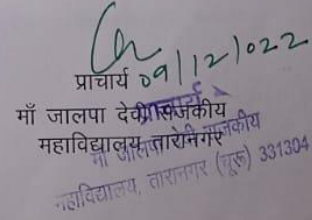 09/12/022
प्राचार्य
माँ जालपा देवी राजकीय
महाविद्यालय, तारानगर
प्राचार्य
माँ जालपा देवी राजकीय
महाविद्यालय, तारानगर (चूरू) 331304